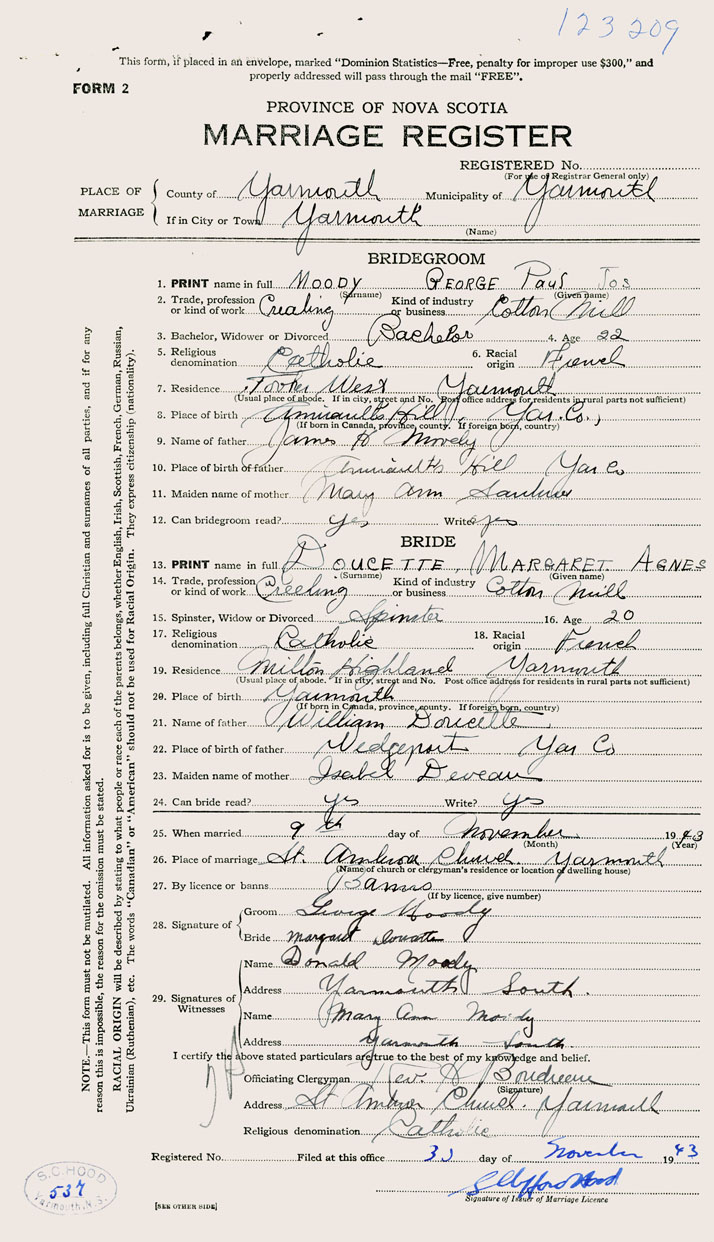 123209
This form, if placed in an envelope, marked “Dominion Statistics—Free, penalty for improper use $300,” and
properly addressed will pass through the mail “FREE”.
FORM 2
PROVINCE OF NOVA SCOTIA
MARRIAGE REGISTER
REGISTERED No.
(For use of Registrar General only)
PLACE OF MARRIAGE
County of Yarmouth Municipality of Yarmouth
If in City or Town Yarmouth
(Name)
BRIDEGROOM
1. PRINT name in full MOODY GEORGE Paul Jos
(Surname) (Given name)
2. Trade, profession or kind of work Kind of industry or business Cotton Mill
3. Bachelor, Widower or Divorced Bachelor 4. Age 22
5. Religious denomination Catholic 6. Racial origin French
7. Residence West Yarmouth
(Usual place of abode. If in city, street and No. Post office address for residents in rural parts not sufficient)
8. Place of birth Hill, Yar. Co.,
(If born in Canada, province, county. If foreign born, country)
9. Name of father James H Moody
10. Place of birth of father Hill Yar Co
11. Maiden name of mother Mary Ann
12. Can bridegroom read? yes Write? yes
BRIDE
13. PRINT name in full DOUCETTE, MARGARET AGNES
(Surname) (Given name)
14. Trade, profession or kind of work Creeling Kind of industry or business Cotton Mill
15. Spinster, Widow or Divorced Spinster 16. Age 20
17. Religious denomination Catholic 18. Racial origin French
19. Residence Milton Highland Yarmouth
(Usual place of abode. If in city, street and No. Post office address for residents in rural parts not sufficient)
20. Place of birth Yarmouth
(If born in Canada, province, county. If foreign born, country)
21. Name of father William Doucette
22. Place of birth of father Wedgeport Yar Co
23. Maiden name of mother Isabel Deveau
24. Can bride read? yes Write? yes
25. When married 9th day of November 1943
(Month) (Year)
26. Place of marriage St. Ambrose Church. Yarmouth
(Name of church or clergyman's residence or location of dwelling house)
27. By licence or banns Banns
(If by licence, give number)
28. Signature of
Groom George Moody
Bride Margaret Doucette
29. Signatures of Witnesses
Name Donald Moody
Address Yarmouth South.
Name Mary Ann Moody
Address Yarmouth South.
I certify the above stated particulars are true to the best of my knowledge and belief.
Officiating Clergyman Rev.
(Signature)
Address St Ambrose Church. Yarmouth
Religious denomination Catholic
Registered No. Filed at this office day of November 1943
Signature of Issuer of Marriage Licence
[SEE OTHER SIDE]
S.C. HOOD
537
Yarmouth, N.S.
NOTE.—This form must not be mutilated. All information asked for is to be given, including full Christian and surnames of all parties, and if for any
reason this is impossible, the reason for the omission must be stated.
RACIAL ORIGIN will be described by stating to what people or race each of the parents belongs, whether English, Irish, Scottish, French, German, Russian,
Ukrainian (Ruthenian), etc. The words “Canadian” or “American” should not be used for Racial Origin. They express citizenship (nationality).